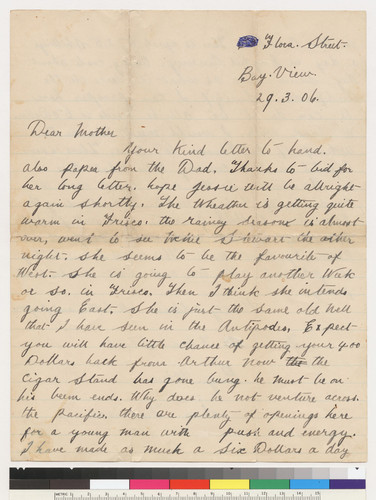 Flora. Street.
Bay. View.
29. 3. 06.
Dear Mother
Your Kind letter to hand.
also paper from the Dad. Thanks to for
her long letter. hope Jessie will be allright
again shortly. The Wheather is getting quite
warm in Frisco. the rainey seasons is almost
over, went to see Stewart the other
night. She seems to be the favourite of
West. She is going to play another Week
or so. in Frisco. Then I think she intends
going East. She is just the same old Nell
that I have seen in the Antipodes. Expect
you will have little chance of getting your 400
Dollars back from Arthur now the the
Cigar Stand has gone bung. he must be on
his beem ends. Why does he not venture across
the Pacific. there are plenty of openings here
for a young man with push and energy.
I have made as much a Six Dollars a day